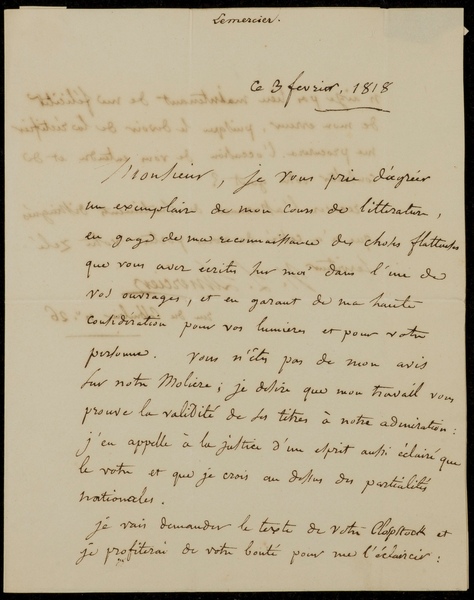 Lemercier.
ce 3 fevrier, 1818
Monsieur, je vous prie d'agréer
un exemplaire de mon cours de littérature,
en gage de ma reconnaissance des choses flatteuses
que vous avez écrites sur moi dans l'une de
vos ouvrages, et en garant de ma haute
considération pour vos lumieres et pour votre
personne. Vous n'êtes pas de mon avis
sur notre Moliere; je desire que mon travail vous
prouve la validité de ses titres à notre admiration:
j'en appelle à la justice d'un esprit aussi éclairé que
le votre et que je crois au dessus des partialités
nationales.
je vais demander le texte de votre Clopstock et
je profiterai de votre bonté pour me l'éclaircir: